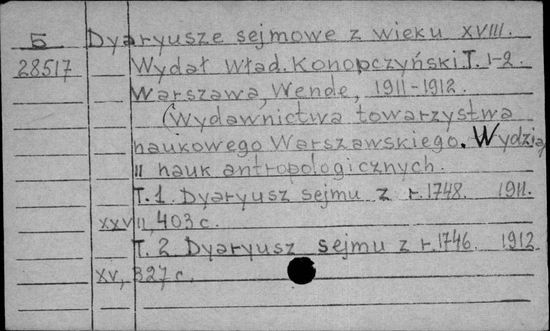 Б Dyaryusze sejmowe z wieku XVIII.
28517 Wydał Wład. Konopczyński. T. 1-2.
Warszawa, Wende, 1911-1912.
(Wydawnictwa towarzystwa
naukowego Warszawskiego. Wydział
II nauk antropologicznych.
T. 1. Dyaryusz sejmu z r. 1748. 1911.
XXVII, 403 c.
T. 2 Dyaryusz sejmu z r. 1746. 1912
XV, 327 c.